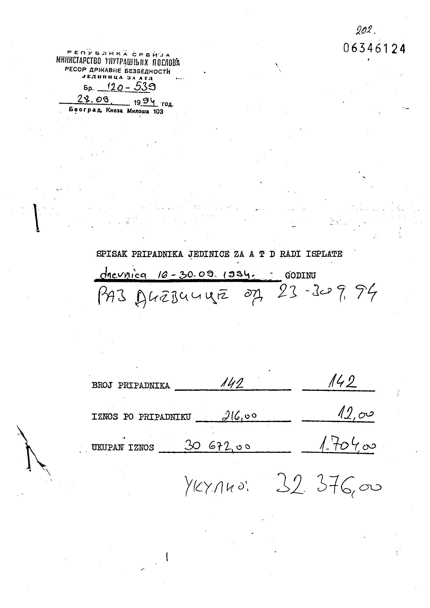 202.
06346124
РЕПУБЛИКА СРБИЈА
МИНИСТАРСТВО УНУТРАШЊИХ ПОСЛОВА
РЕСОР ДРЖАВНЕ БЕЗБЕДНОСТИ
ЈЕДИНИЦА ЗА АТД
Бр. 120-539
28.09. 1994 год.
Београд, Кнеза Милоша 103
SPISAK PRIPADNIKA JEDINICE ZA A T D RADI ISPLATE
dnevnica 16-30.09.1994. GODINU
РАЗ ДНЕВНИЦЕ од 23-309,94
BROJ PRIPADNIKA 142 142
IZNOS PO PRIPADNIKU 216,00 12,00
UKUPAN IZNOS 30 672,00 1.704,00
УКУПНО: 32.376,00